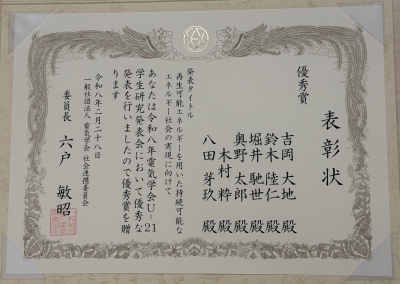 表彰状
優秀賞
吉岡 大地 殿
鈴木 陸仁 殿
堀井 馳世 殿
奥野 太郎 殿
木村 粋 殿
八田 芽玖 殿
発表タイトル
再生可能エネルギーを用いた持続可能な
エネルギー社会の実現に向けて
あなたは令和八年電気学会U-21
学生研究発表会において優秀な
発表を行いましたので優秀賞を贈
ります
令和八年二月二十八日
一般社団法人 電気学会 社会連携委員会
委員長 六戸 敏昭